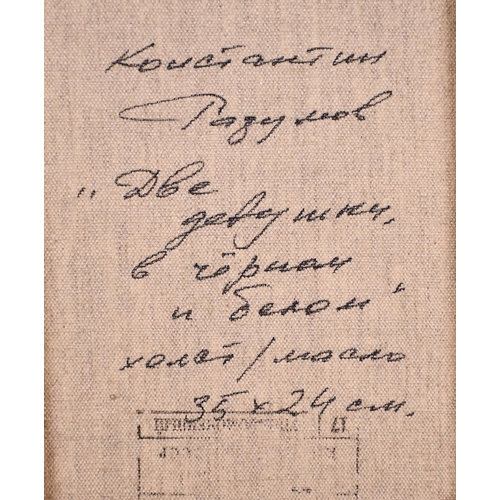 Константин
Разумов
„Две
девушки,
в чёрном
и белом“
холст/масло
35 х 24 см.